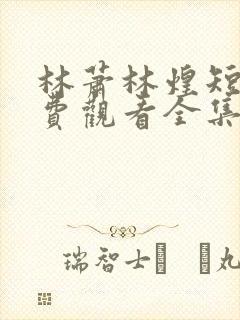 林蕭林煌短
費觀看全集
瑞智士 丸